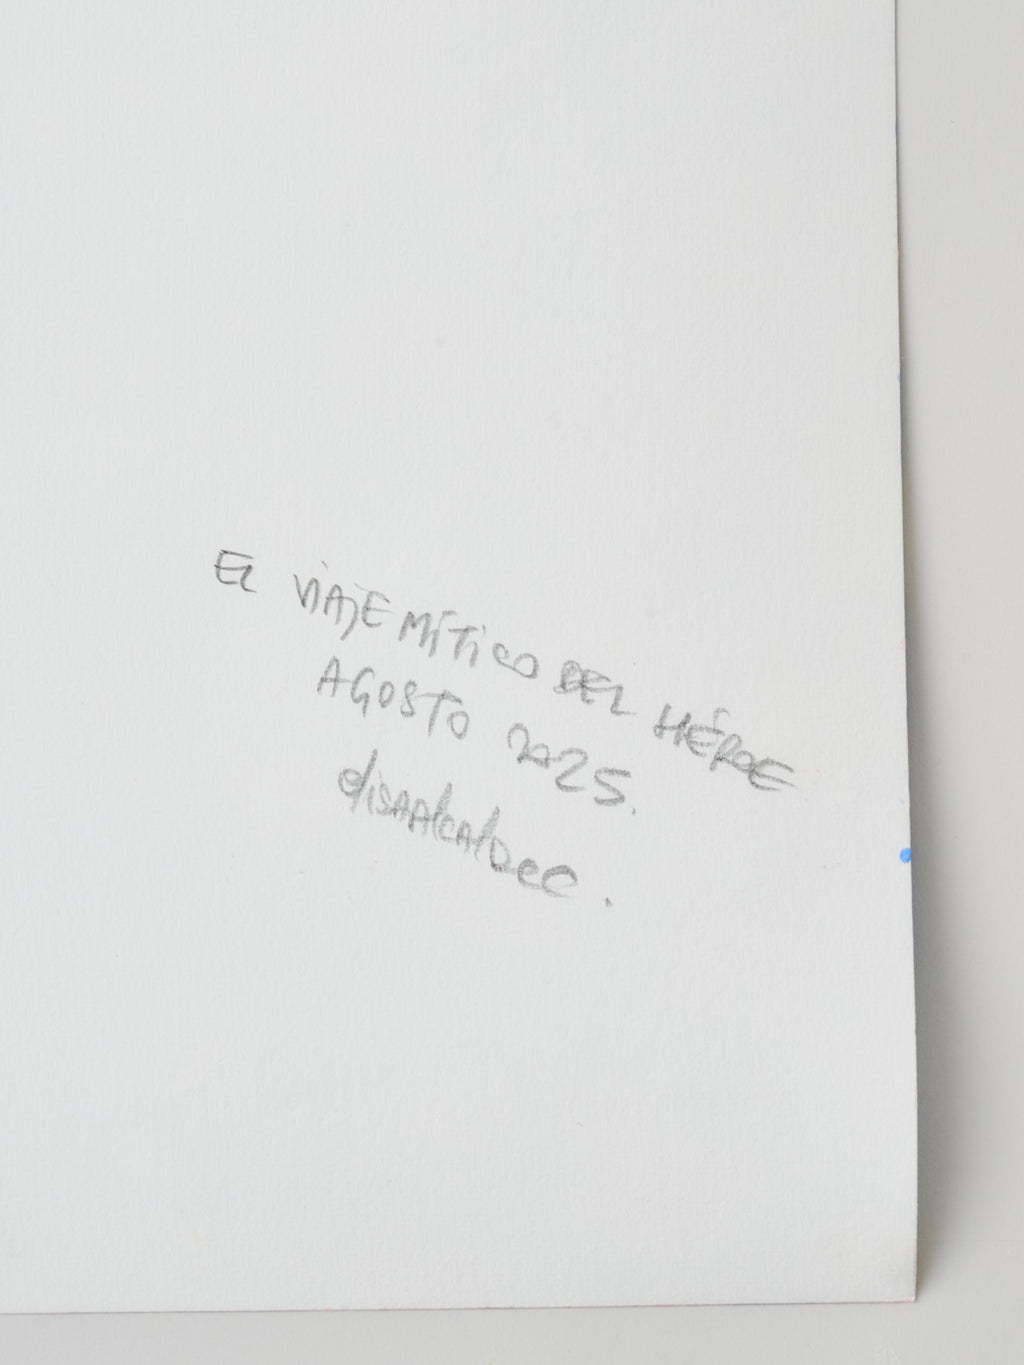 EL VIAJE MÍTICO DEL HÉROE
AGOSTO 2025.
elisaalcaldec.